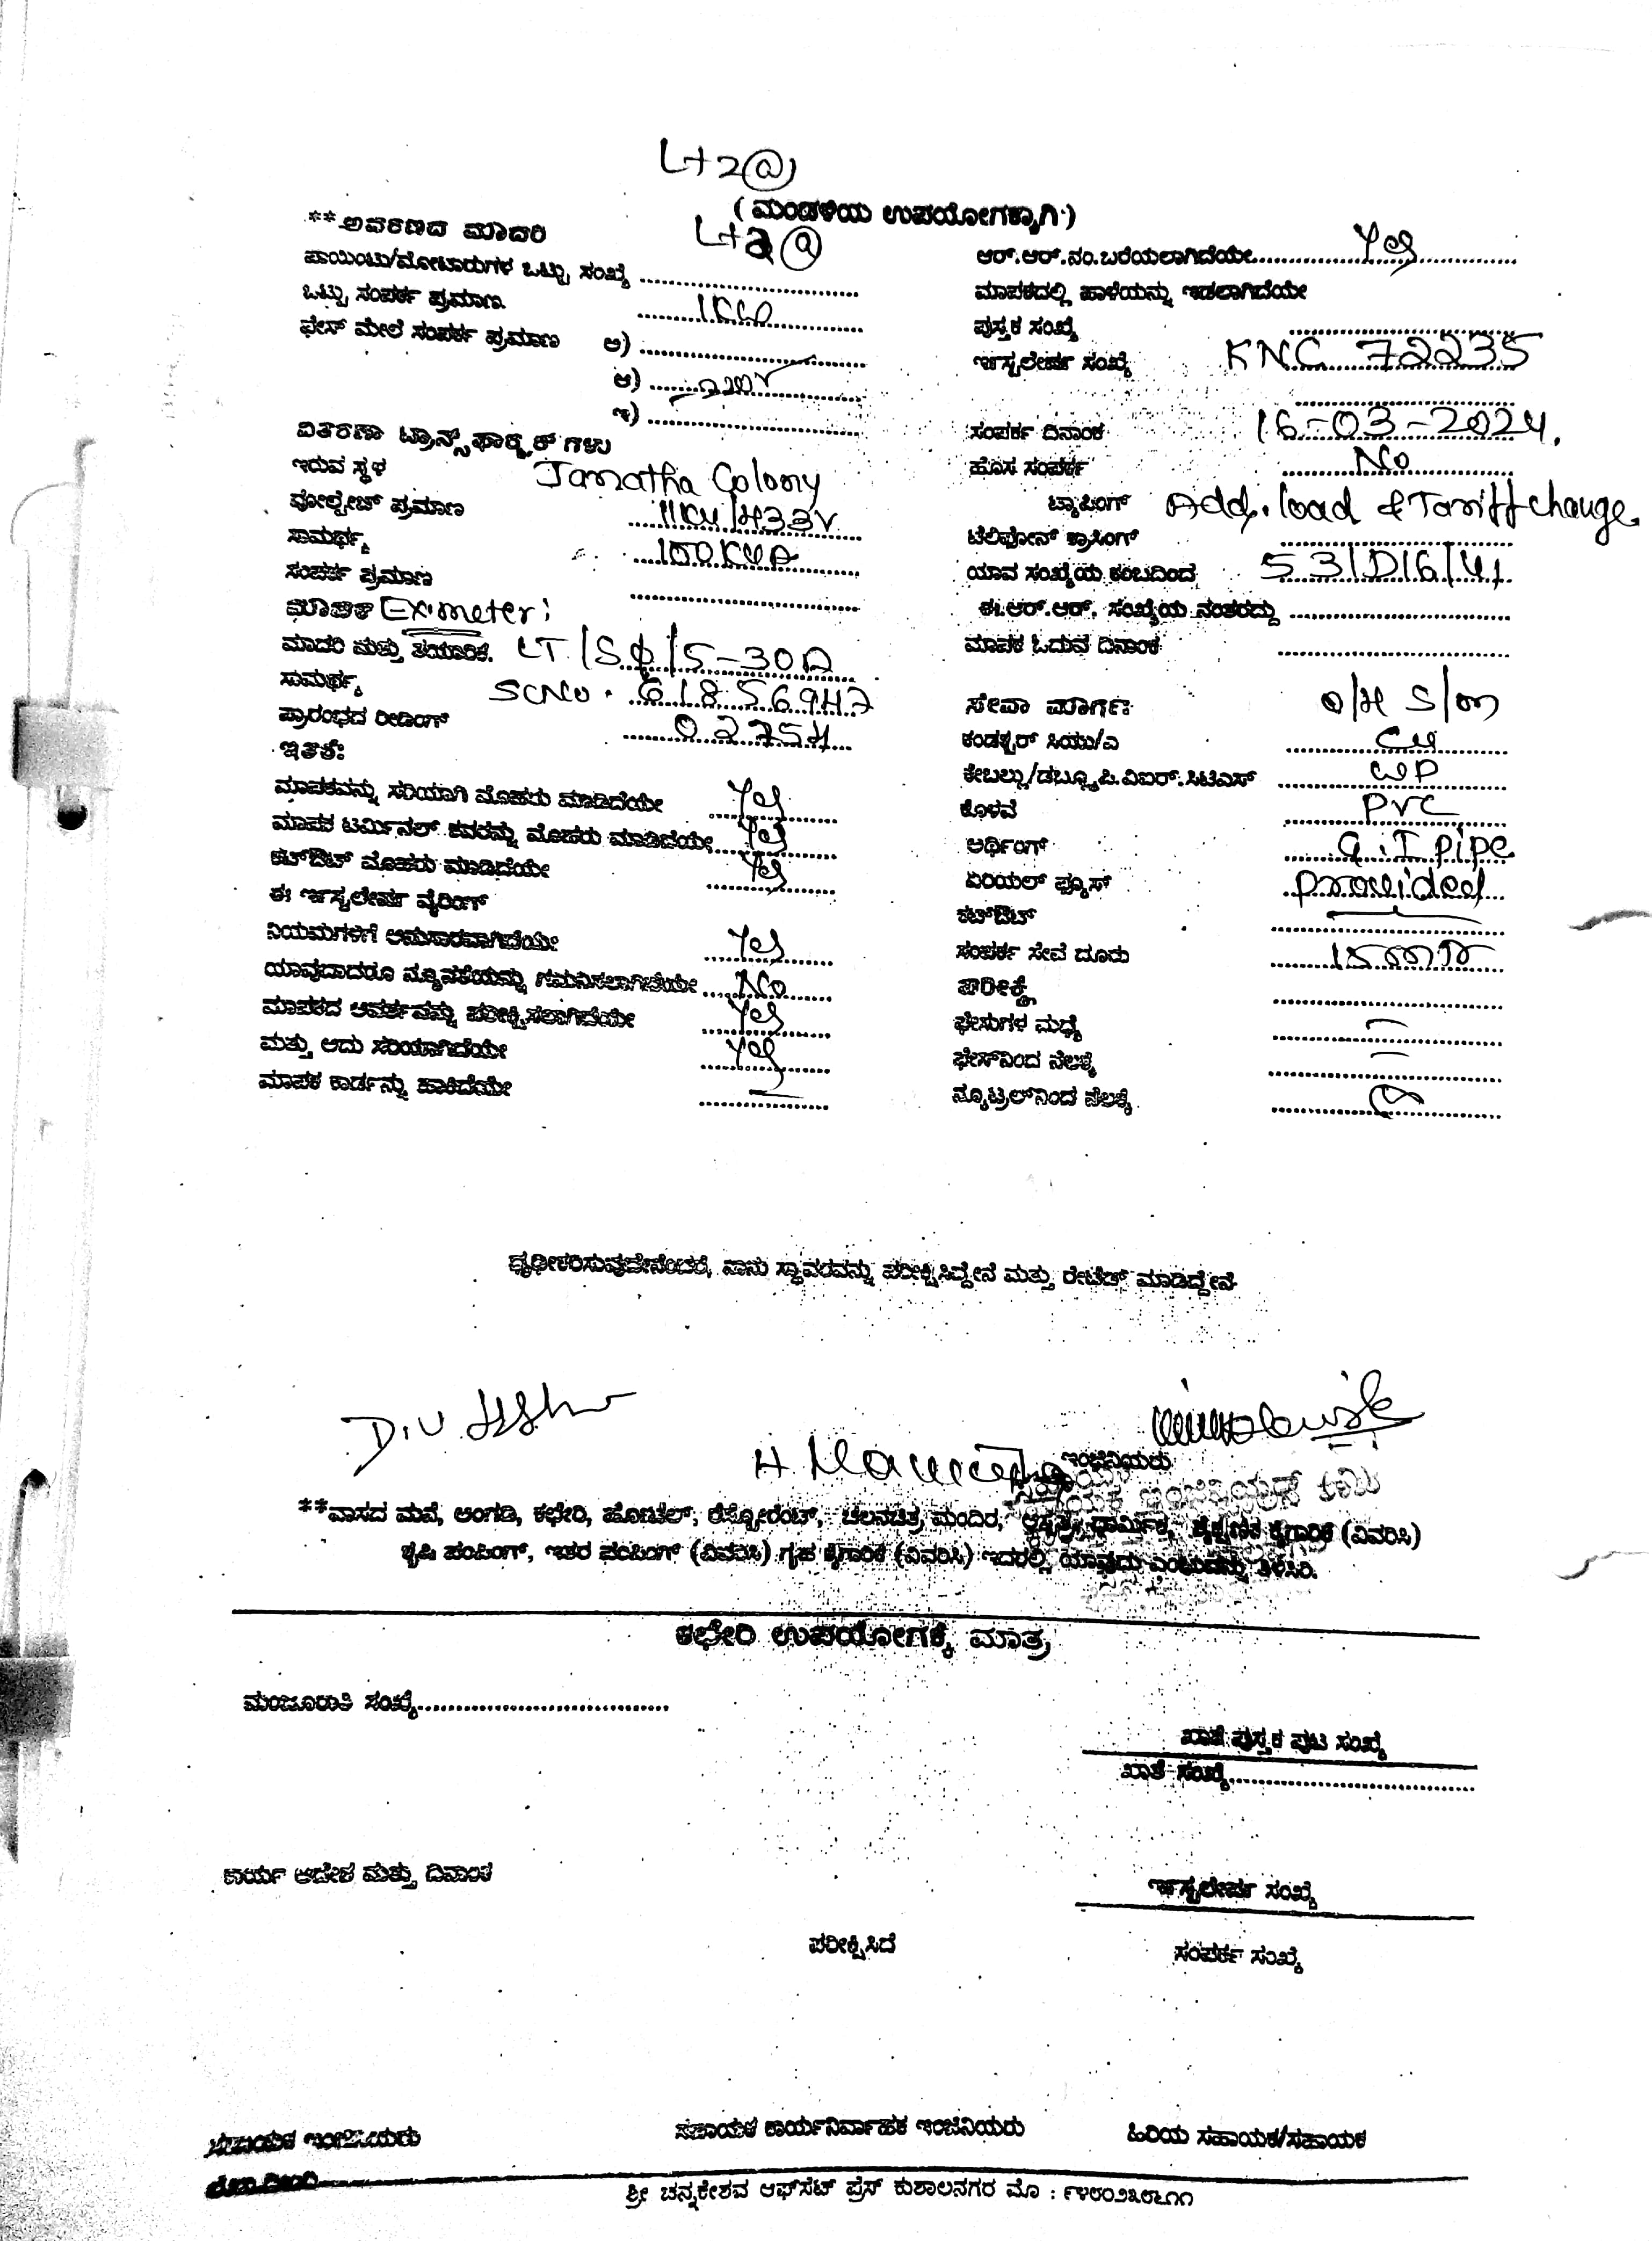 Lt 2(a)
(ಮಂಡಳಿಯ ಉಪಯೋಗಕ್ಕಾಗಿ)
**ಆವರಣದ ಮಾದರಿ Lt 2(a)
ಪಾಯಿಂಟು/ಮೋಟಾರುಗಳ ಒಟ್ಟು ಸಂಖ್ಯೆ ..........
ಒಟ್ಟು ಸಂಪರ್ಕ ಪ್ರಮಾಣ 1KW
ಫೇಸ್ ಮೇಲೆ ಸಂಪರ್ಕ ಪ್ರಮಾಣ ಅ) ..........
ಆ) ..........
ಇ) ..........
ವಿತರಣಾ ಟ್ರಾನ್ಸ್‌ಫಾರ್ಮರ್‌ಗಳು
ಇರುವ ಸ್ಥಳ Janatha Colony
ವೋಲ್ಟೇಜ್ ಪ್ರಮಾಣ 11KV/433V
ಸಾಮರ್ಥ್ಯ 100KVA
ಸಂಪರ್ಕ ಪ್ರಮಾಣ ..........
ಮಾಪಕ Ex:meter:
ಮಾದರಿ ಮತ್ತು ತಯಾರಿಕೆ. LT/Sφ/5-30A
ಸಾಮರ್ಥ್ಯ SCNo. 61856947
ಪ್ರಾರಂಭದ ರೀಡಿಂಗ್ 02754
ಇತರೆ:
ಮಾಪಕವನ್ನು ಸರಿಯಾಗಿ ಮೊಹರು ಮಾಡಿದೆಯೇ Yes
ಮಾಪಕ ಟರ್ಮಿನಲ್ ಕವರನ್ನು ಮೊಹರು ಮಾಡಿದೆಯೇ Yes
ಕಟ್‌ಔಟ್ ಮೊಹರು ಮಾಡಿದೆಯೇ Yes
ಈ ಇನ್ಸ್ಟಲೇಷನ್ ವೈರಿಂಗ್
ನಿಯಮಗಳಿಗೆ ಅನುಸಾರವಾಗಿದೆಯೇ Yes
ಯಾವುದಾದರೂ ನ್ಯೂನತೆಯನ್ನು ಗಮನಿಸಲಾಗಿದೆಯೇ No
ಮಾಪಕದ ಆವರ್ತನವನ್ನು ಪರೀಕ್ಷಿಸಲಾಗಿದೆಯೇ Yes
ಮತ್ತು ಅದು ಸರಿಯಾಗಿದೆಯೇ Yes
ಮಾಪಕ ಕಾರ್ಡನ್ನು ಹಾಕಿದೆಯೇ ..........
ಆರ್.ಆರ್.ನಂ.ಬರೆಯಲಾಗಿದೆಯೇ Yes
ಮಾಪಕದಲ್ಲಿ ಹಾಳೆಯನ್ನು ಇಡಲಾಗಿದೆಯೇ
ಪುಸ್ತಕ ಸಂಖ್ಯೆ ..........
ಇನ್ಸ್ಟಲೇಷನ್ ಸಂಖ್ಯೆ KNC 72235
ಸಂಪರ್ಕ ದಿನಾಂಕ 16-03-2024.
ಹೊಸ ಸಂಪರ್ಕ No
ಟ್ಯಾಪಿಂಗ್ Add. load & Tariff change.
ಟೆಲಿಫೋನ್ ಕ್ರಾಸಿಂಗ್ ..........
ಯಾವ ಸಂಖ್ಯೆಯ ಕಂಬದಿಂದ 531/D16/41
ಈ.ಆರ್.ಆರ್. ಸಂಖ್ಯೆಯ ನಂತರದ್ದು ..........
ಮಾಪಕ ಓದುವ ದಿನಾಂಕ ..........
ಸೇವಾ ಮಾರ್ಗ: O/H S/m
ಕಂಡಕ್ಟರ್ ಸಿಯು/ಎ CU
ಕೇಬಲ್ಲು/ಡಬ್ಲ್ಯೂ.ಪಿ.ವಿಐಆರ್.ಸಿಟಿಎಸ್ WP
ಕೊಳವೆ PVC
ಅರ್ಥಿಂಗ್ G.I pipe
ಏರಿಯಲ್ ಫ್ಯೂಸ್ provided
ಕಟ್‌ಔಟ್ ..........
ಸಂಪರ್ಕ ಸೇವೆ ದೂರು
ಪರೀಕ್ಷೆ ..........
ಫೇಸುಗಳ ಮಧ್ಯೆ ..........
ಫೇಸ್‌ನಿಂದ ನೆಲಕ್ಕೆ ..........
ನ್ಯೂಟ್ರಲ್‌ನಿಂದ ನೆಲಕ್ಕೆ ..........
ದೃಢೀಕರಿಸುವುದೇನೆಂದರೆ, ನಾನು ಸ್ಥಾವರವನ್ನು ಪರೀಕ್ಷಿಸಿದ್ದೇನೆ ಮತ್ತು ರೇಟೆಡ್ ಮಾಡಿದ್ದೇನೆ
ಇಂಜಿನಿಯರು
**ವಾಸದ ಮನೆ, ಅಂಗಡಿ, ಕಛೇರಿ, ಹೋಟೆಲ್, ರೆಸ್ಟೋರೆಂಟ್, ಚಲನಚಿತ್ರ ಮಂದಿರ, ಆಸ್ಪತ್ರೆ, ಧಾರ್ಮಿಕ, ಶೈಕ್ಷಣಿಕ ಕೈಗಾರಿಕೆ (ವಿವರಿಸಿ)
ಕೃಷಿ ಪಂಪಿಂಗ್, ಇತರ ಪಂಪಿಂಗ್ (ವಿವರಿಸಿ) ಗೃಹ ಕೈಗಾರಿಕೆ (ವಿವರಿಸಿ) ಇದರಲ್ಲಿ ಯಾವುದು ಎಂಬುದನ್ನು ತಿಳಿಸಿರಿ.
ಕಛೇರಿ ಉಪಯೋಗಕ್ಕೆ ಮಾತ್ರ
ಮಂಜೂರಾತಿ ಸಂಖ್ಯೆ..........
ಖಾತೆ ಪುಸ್ತಕ ಪುಟ ಸಂಖ್ಯೆ
ಖಾತೆ ಸಂಖ್ಯೆ..........
ಕಾರ್ಯ ಆದೇಶ ಮತ್ತು ದಿನಾಂಕ
ಇನ್ಸ್ಟಲೇಷನ್ ಸಂಖ್ಯೆ
ಪರೀಕ್ಷಿಸಿದೆ ಸಂಪರ್ಕ ಸಂಖ್ಯೆ
ಸಹಾಯಕ ಇಂಜಿನಿಯರು ಸಹಾಯಕ ಕಾರ್ಯನಿರ್ವಾಹಕ ಇಂಜಿನಿಯರು ಹಿರಿಯ ಸಹಾಯಕ/ಸಹಾಯಕ
ಶ್ರೀ ಚನ್ನಕೇಶವ ಆಫ್‌ಸೆಟ್ ಪ್ರೆಸ್ ಕುಶಾಲನಗರ ಮೊ : ೯೪೮೦೨೩೮೬೧೧